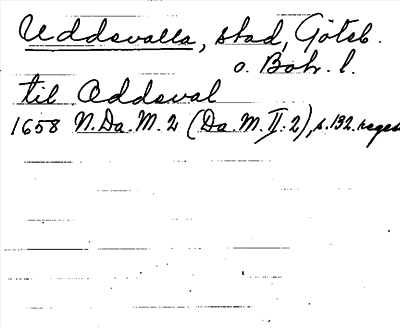 Uddevalla, stad, Göteb.
o. Boh. l.
til Oddeval
1658 N.Da.M. 2 (Da.M. II:2), s. 132. regest